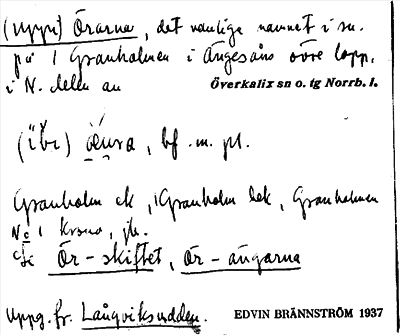 (Uppe) Örarna, det vanliga namnet i sn.
på 1 Granholmen i Ängesåns övre lopp,
i N. delen av Överkalix sn o. tg Norrb. l.
(übr) öura, bf. m. pl.
Granholm ek, Granholm lek, Granholmen
No 1 Krono, jb.
Se Ör-skiftet, Ör-ängarna
Uppg. fr. Långviksudden. EDVIN BRÄNNSTRÖM 1937